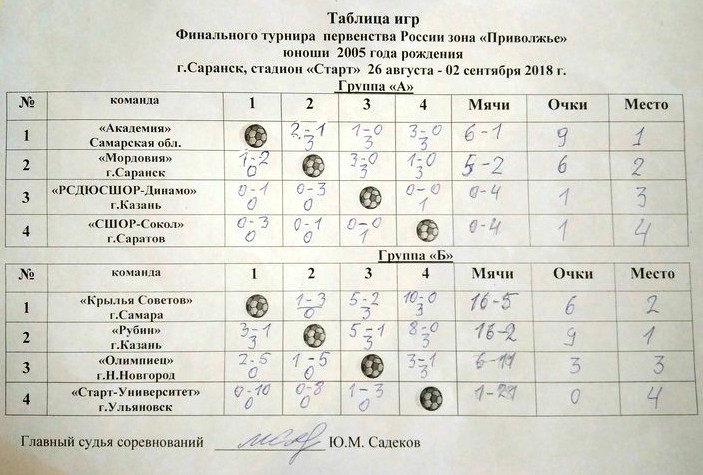 Таблица игр
Финального турнира первенства России зона «Приволжье»
юноши 2005 года рождения
г.Саранск, стадион «Старт» 26 августа - 02 сентября 2018 г.
Группа «А»
№ команда 1 2 3 4 Мячи Очки Место
1 «Академия» Самарская обл. 2-1 3 1-0 3 3-0 3 6-1 9 1
2 «Мордовия» г.Саранск 1-2 0 3-0 3 1-0 3 5-2 6 2
3 «РСДЮСШОР-Динамо» г.Казань 0-1 0 0-3 0 0-0 1 0-4 1 3
4 «СШОР-Сокол» г.Саратов 0-3 0 0-1 0 0-0 1 0-4 1 4
Группа «Б»
№ команда 1 2 3 4 Мячи Очки Место
1 «Крылья Советов» г.Самара 1-3 0 5-2 3 10-0 3 16-5 6 2
2 «Рубин» г.Казань 3-1 3 5-1 3 8-0 3 16-2 9 1
3 «Олимпиец» г.Н.Новгород 2-5 0 1-5 0 3-1 3 6-11 3 3
4 «Старт-Университет» г.Ульяновск 0-10 0 0-8 0 1-3 0 1-21 0 4
Главный судья соревнований Ю.М. Садеков